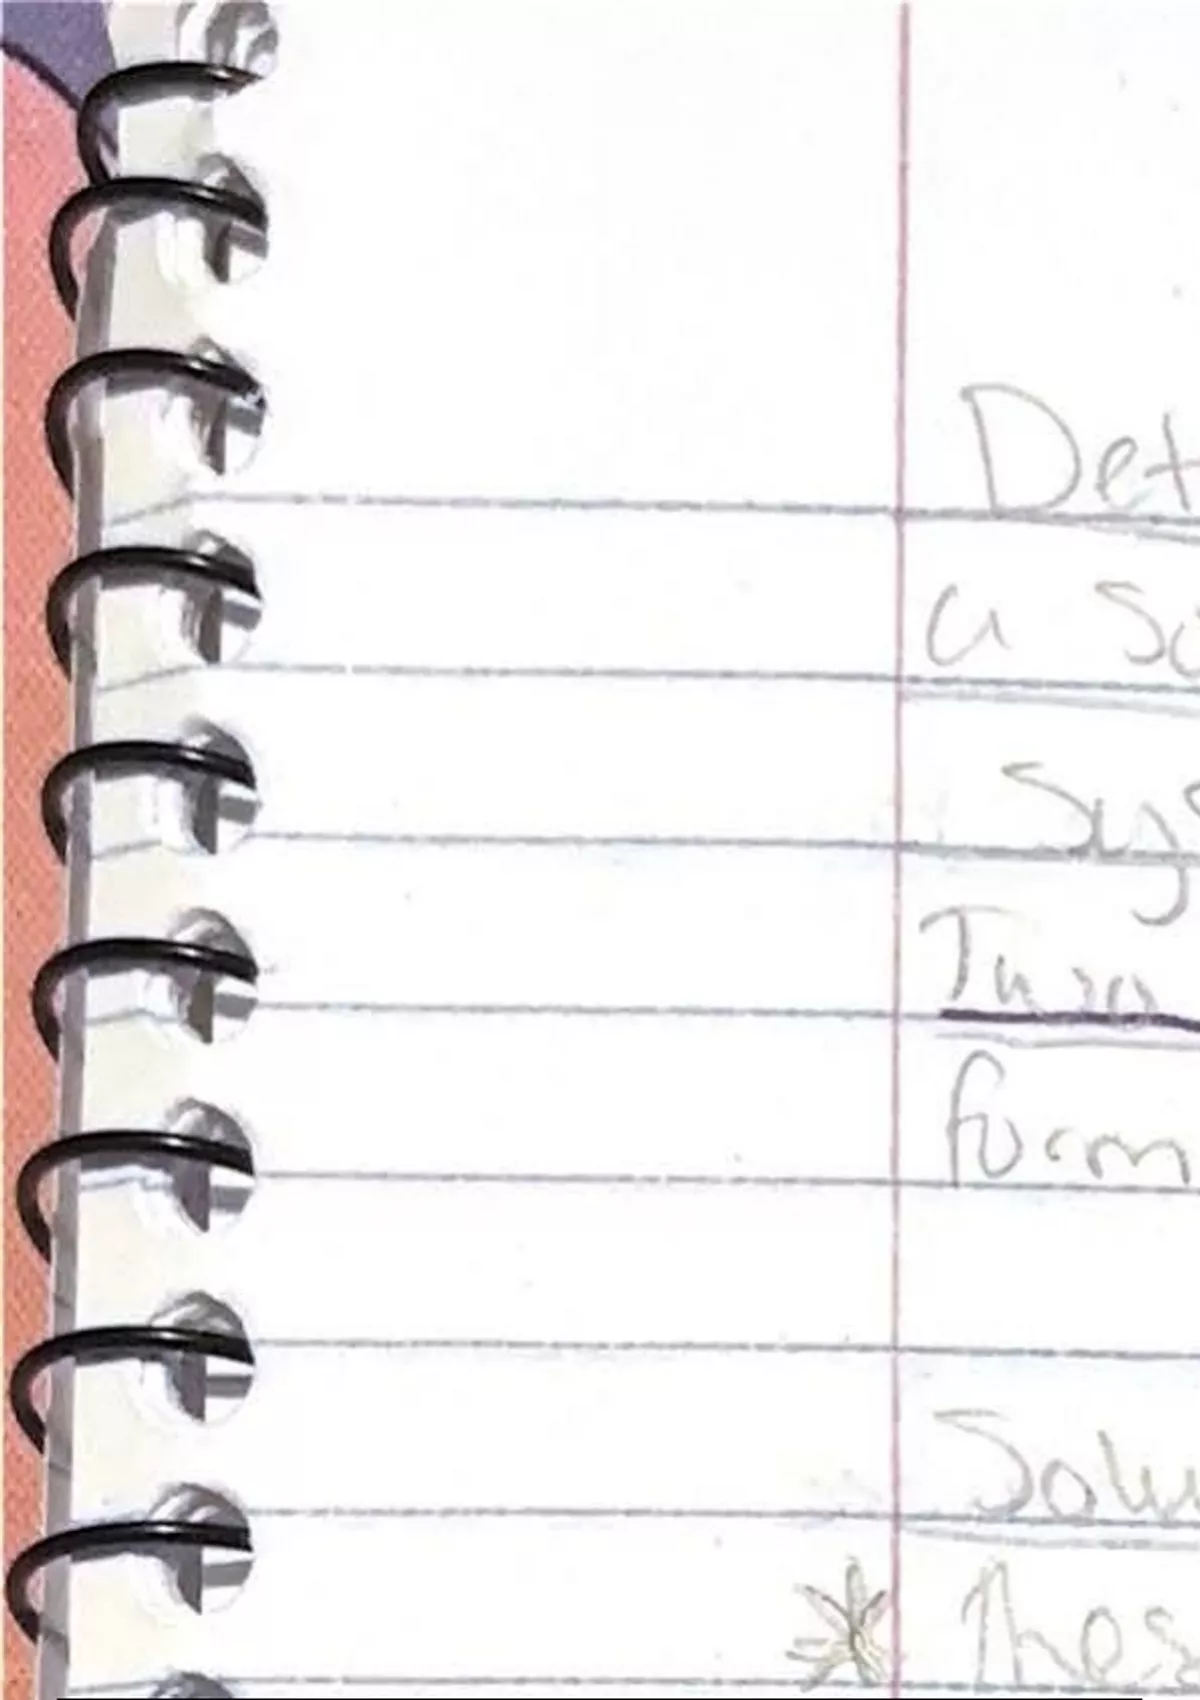 Det
a So
Sys
form
Solu
* Thes